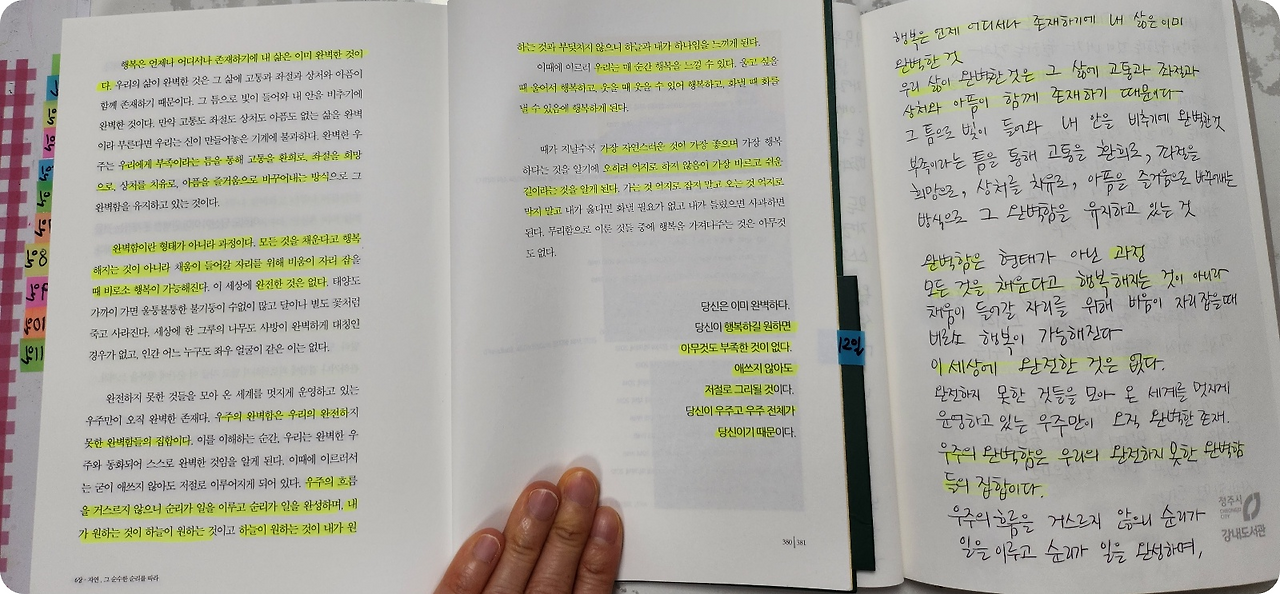 행복은 언제나 어디서나 존재하기에 내 삶은 이미 완벽한 것이
다. 우리의 삶이 완벽한 것은 그 삶에 고통과 좌절과 상처와 아픔이
함께 존재하기 때문이다. 그 틈으로 빛이 들어와 내 안을 비추기에
완벽한 것이다. 만약 고통도 좌절도 상처도 아픔도 없는 삶을 완벽
이라 부른다면 우리는 신이 만들어놓은 기계에 불과하다. 완벽한 우
주는 우리에게 부족이라는 틈을 통해 고통을 환희로, 좌절을 희망
으로, 상처를 치유로, 아픔을 즐거움으로 바꾸어내는 방식으로 그
완벽함을 유지하고 있는 것이다.
완벽함이란 형태가 아니라 과정이다. 모든 것을 채운다고 행복
해지는 것이 아니라 채움이 들어갈 자리를 위해 비움이 자리 잡을
때 비로소 행복이 가능해진다. 이 세상에 완전한 것은 없다. 태양도
가까이 가면 울퉁불퉁한 불기둥이 수없이 많고 달이나 별도 꽃처럼
죽고 사라진다. 세상에 한 그루의 나무도 사방이 완벽하게 대칭인
경우가 없고, 인간 어느 누구도 좌우 얼굴이 같은 이는 없다.
완전하지 못한 것들을 모아 온 세계를 멋지게 운영하고 있는
우주만이 오직 완벽한 존재다. 우주의 완벽함은 우리의 완전하지
못한 완벽함들의 집합이다. 이를 이해하는 순간, 우리는 완벽한 우
주와 동화되어 스스로 완벽한 것임을 알게 된다. 이때에 이르러서
는 굳이 애쓰지 않아도 저절로 이루어지게 되어 있다. 우주의 흐름
을 거스르지 않으니 순리가 일을 이루고 순리가 일을 완성하며, 내
가 원하는 것이 하늘이 원하는 것이고 하늘이 원하는 것이 내가 원
6장 · 자연, 그 순수한 순리를 따라
하는 것과 부딪치지 않으니 하늘과 내가 하나임을 느끼게 된다.
이때에 이르러 우리는 매 순간 행복을 느낄 수 있다. 울고 싶을
때 울어서 행복하고, 웃을 때 웃을 수 있어 행복하고, 화낼 때 화를
낼 수 있음에 행복하게 된다.
때가 지날수록 가장 자연스러운 것이 가장 좋으며 가장 행복
하다는 것을 알기에 오히려 억지로 하지 않음이 가장 바르고 쉬운
길이라는 것을 알게 된다. 가는 것 억지로 잡지 말고 오는 것 억지로
막지 말고 내가 옳다면 화낼 필요가 없고 내가 틀렸으면 사과하면
된다. 무리함으로 이룬 것들 중에 행복을 가져다주는 것은 아무것
도 없다.
당신은 이미 완벽하다.
당신이 행복하길 원하면
아무것도 부족한 것이 없다.
애쓰지 않아도
저절로 그리될 것이다.
당신이 우주고 우주 전체가
당신이기 때문이다.
380 | 381
12월
행복은 언제 어디서나 존재하기에 내 삶은 이미
완벽한 것
우리 삶이 완벽한 것은 그 삶에 고통과 좌절과
상처와 아픔이 함께 존재하기 때문이다
그 틈으로 빛이 들어와 내 안을 비추기에 완벽한 것
부족이라는 틈을 통해 고통을 환희로, 좌절을
희망으로, 상처를 치유로, 아픔을 즐거움으로 바꾸어내는
방식으로 그 완벽함을 유지하고 있는 것
완벽함은 형태가 아닌 과정
모든 것을 채운다고 행복해지는 것이 아니라
채움이 들어갈 자리를 위해 비움이 자리잡을때
비로소 행복이 가능해진다
이 세상에 완전한 것은 없다.
완전하지 못한 것들을 모아 온 세계를 멋지게
운영하고 있는 우주만이 오직 완벽한 존재.
우주의 완벽함은 우리의 완전하지 못한 완벽함
들의 집합이다.
우주의 흐름을 거스르지 않으니 순리가
일을 이루고 순리가 일을 완성하며,
청주시
CHEONGJU CITY
강내도서관
10월
11월